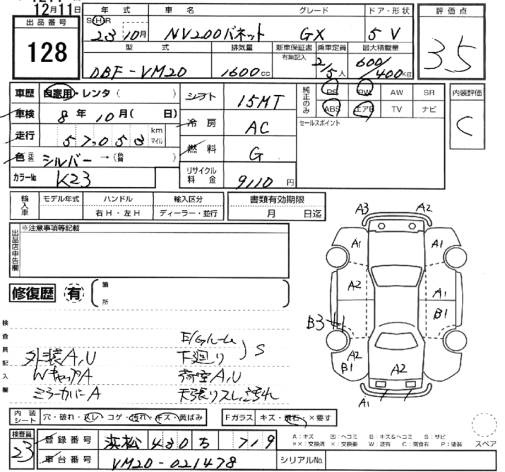 12月11日
出品番号
128
年式
車名
グレード
ドア・形状
評価点
SHR
23年10月
NV200バネット
GX
5V
3.5
型式
排気量
新車保証書
有無記入
乗車定員
最大積載量
DBF-VM20
1600cc
2/5人
600/400kg
車歴
自家用・レンタ( )
車検
8年10月(日)
走行
57058
km
マイル
色
シルバー→( )
カラーNo
K23
シフト
15MT
冷房
AC
燃料
G
リサイクル料金
9110円
純正のみ
PS PW AW SR
ABS エアB TV ナビ
セールスポイント
内装評価
C
輸入車
モデル年式
ハンドル
輸入区分
右H・左H
ディーラー・並行
書類有効期限
月 日迄
出品店申告欄
※注意事項等記載
修復歴
有
箇所
検査員記入欄
外装A,U
WキャップA
ミラーカバーA
E/Gルーム
下廻り
)S
荷室A,U
A3
A2
A1
A1
A2
A1
A2
B1
B3
A2
B1
A2
A2
A1
A1
内装シート
穴・破れ・スレ・コゲ・汚れ・キズ・黄ばみ
Fガラス
キズ・飛石・×要す
検査員
23
登録番号
浜松 430 ち 719
車台番号
VM20-021478
シリアルNo
スペア
A:キズ